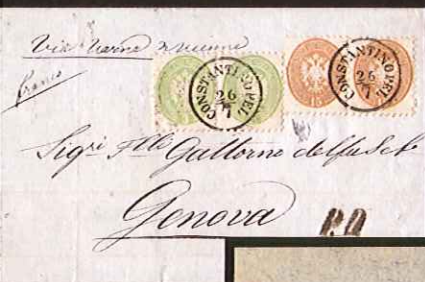 Via Varna e Vienna
franco
CONSTANTINOPEL
26
7
CONSTANTINOPEL
26
7
15
Sigri Flli Gattorno
Genova
P.D.